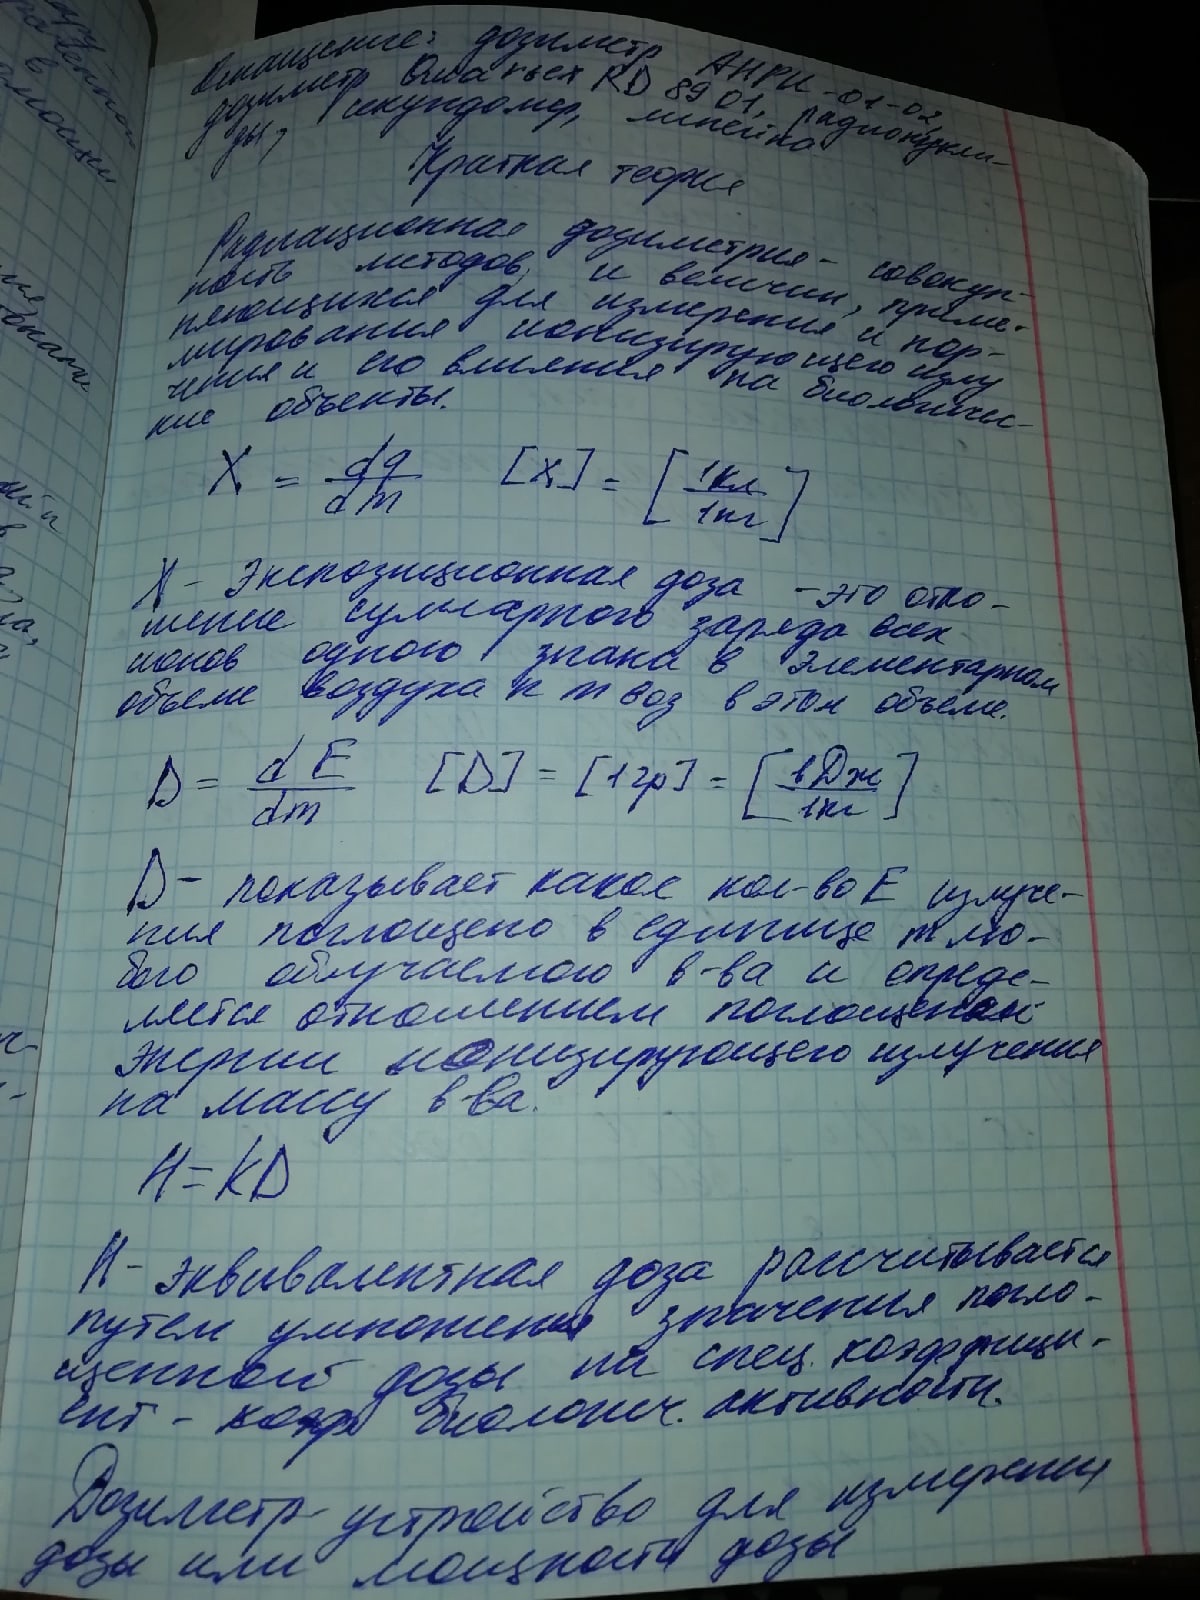 Оснащение: дозиметр АНРИ-01-02,
дозиметр RD 8901, радионукли-
ды, секундомер, линейка
Краткая теория
Радиационная дозиметрия - совокуп-
ность методов, и величин, приме-
няющихся для измерения и нор-
мирования ионизирующего излу
чения и его влияния на биологичес-
кие объекты.
X = dq/dm [X] = [1Кл/1кг]
X - Экспозиционная доза - это отно-
шение суммарного заряда всех
ионов одного знака в элементарном
объеме воздуха к m воз в этом объеме.
D = dE/dm [D] = [1гр] = [1Дж/1кг]
D - показывает какое кол-во E излуче-
ния поглощено в единице m лю-
бого облучаемого в-ва и опреде-
ляется отношением поглощенной
энергии ионизирующего излучения
на массу в-ва.
H = kD
H - эквивалентная доза рассчитывается
путем умножения значения погло-
щенной дозы на спец. коэффици-
ент - коэф биологич. активности.
Дозиметр - устройство для измерения
дозы или мощности дозы